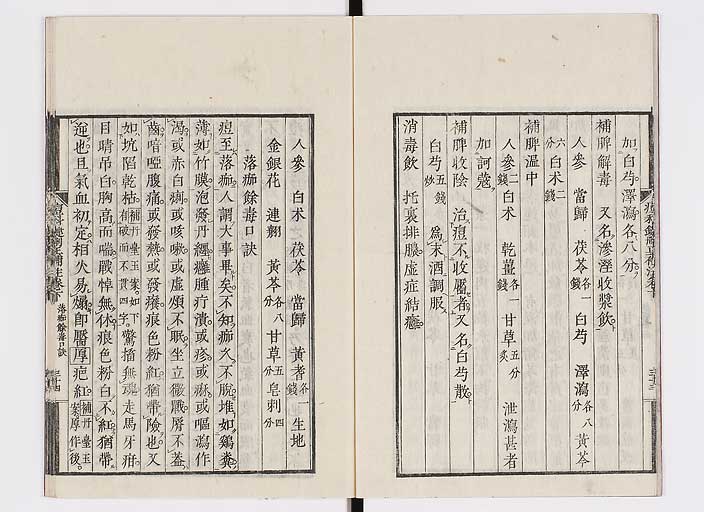 加白芍澤瀉各八分
補脾解毒 又名滲溼收漿飲
人參 當歸 茯苓各一錢 白芍 澤瀉各八分 黃芩
六分 白朮二錢
補脾溫中
人參二錢 白朮 乾薑各一錢 甘草五分炙 泄瀉甚者
加訶蔻
補脾收陰 治痘不收靨者又名白芍散
白芍五錢炒 爲末酒調服
消毒飲 托裏排膿虛症結癰
人參 白朮 茯苓 當歸 黃耆各一錢 生地
金銀花 連翹 黃芩各八分 甘草五分 皂刺四分
落痂餘毒口訣
痘至落痂人謂大事畢矣不知痂久不脫堆如鷄糞
薄如竹膜泡發丹纒癰腫疔潰或疹或痳或嘔瀉作
渴或赤白痢或咳嗽或虛煩不眠坐立微戰脣不蓋
齒喑啞腹痛或發熱或發癢痕色粉紅猶帶險也又
如坑陷乾枯補丹臺玉案如下有破而不貫四字驚搐無魂走馬牙疳
目睛吊白胸高而喘戰悼無休痕色粉白不紅猶帶
逆也且氣血初定相火易煽卽靨厚疤紅補丹臺玉案厚作後
落痂餘毒口訣
三十四